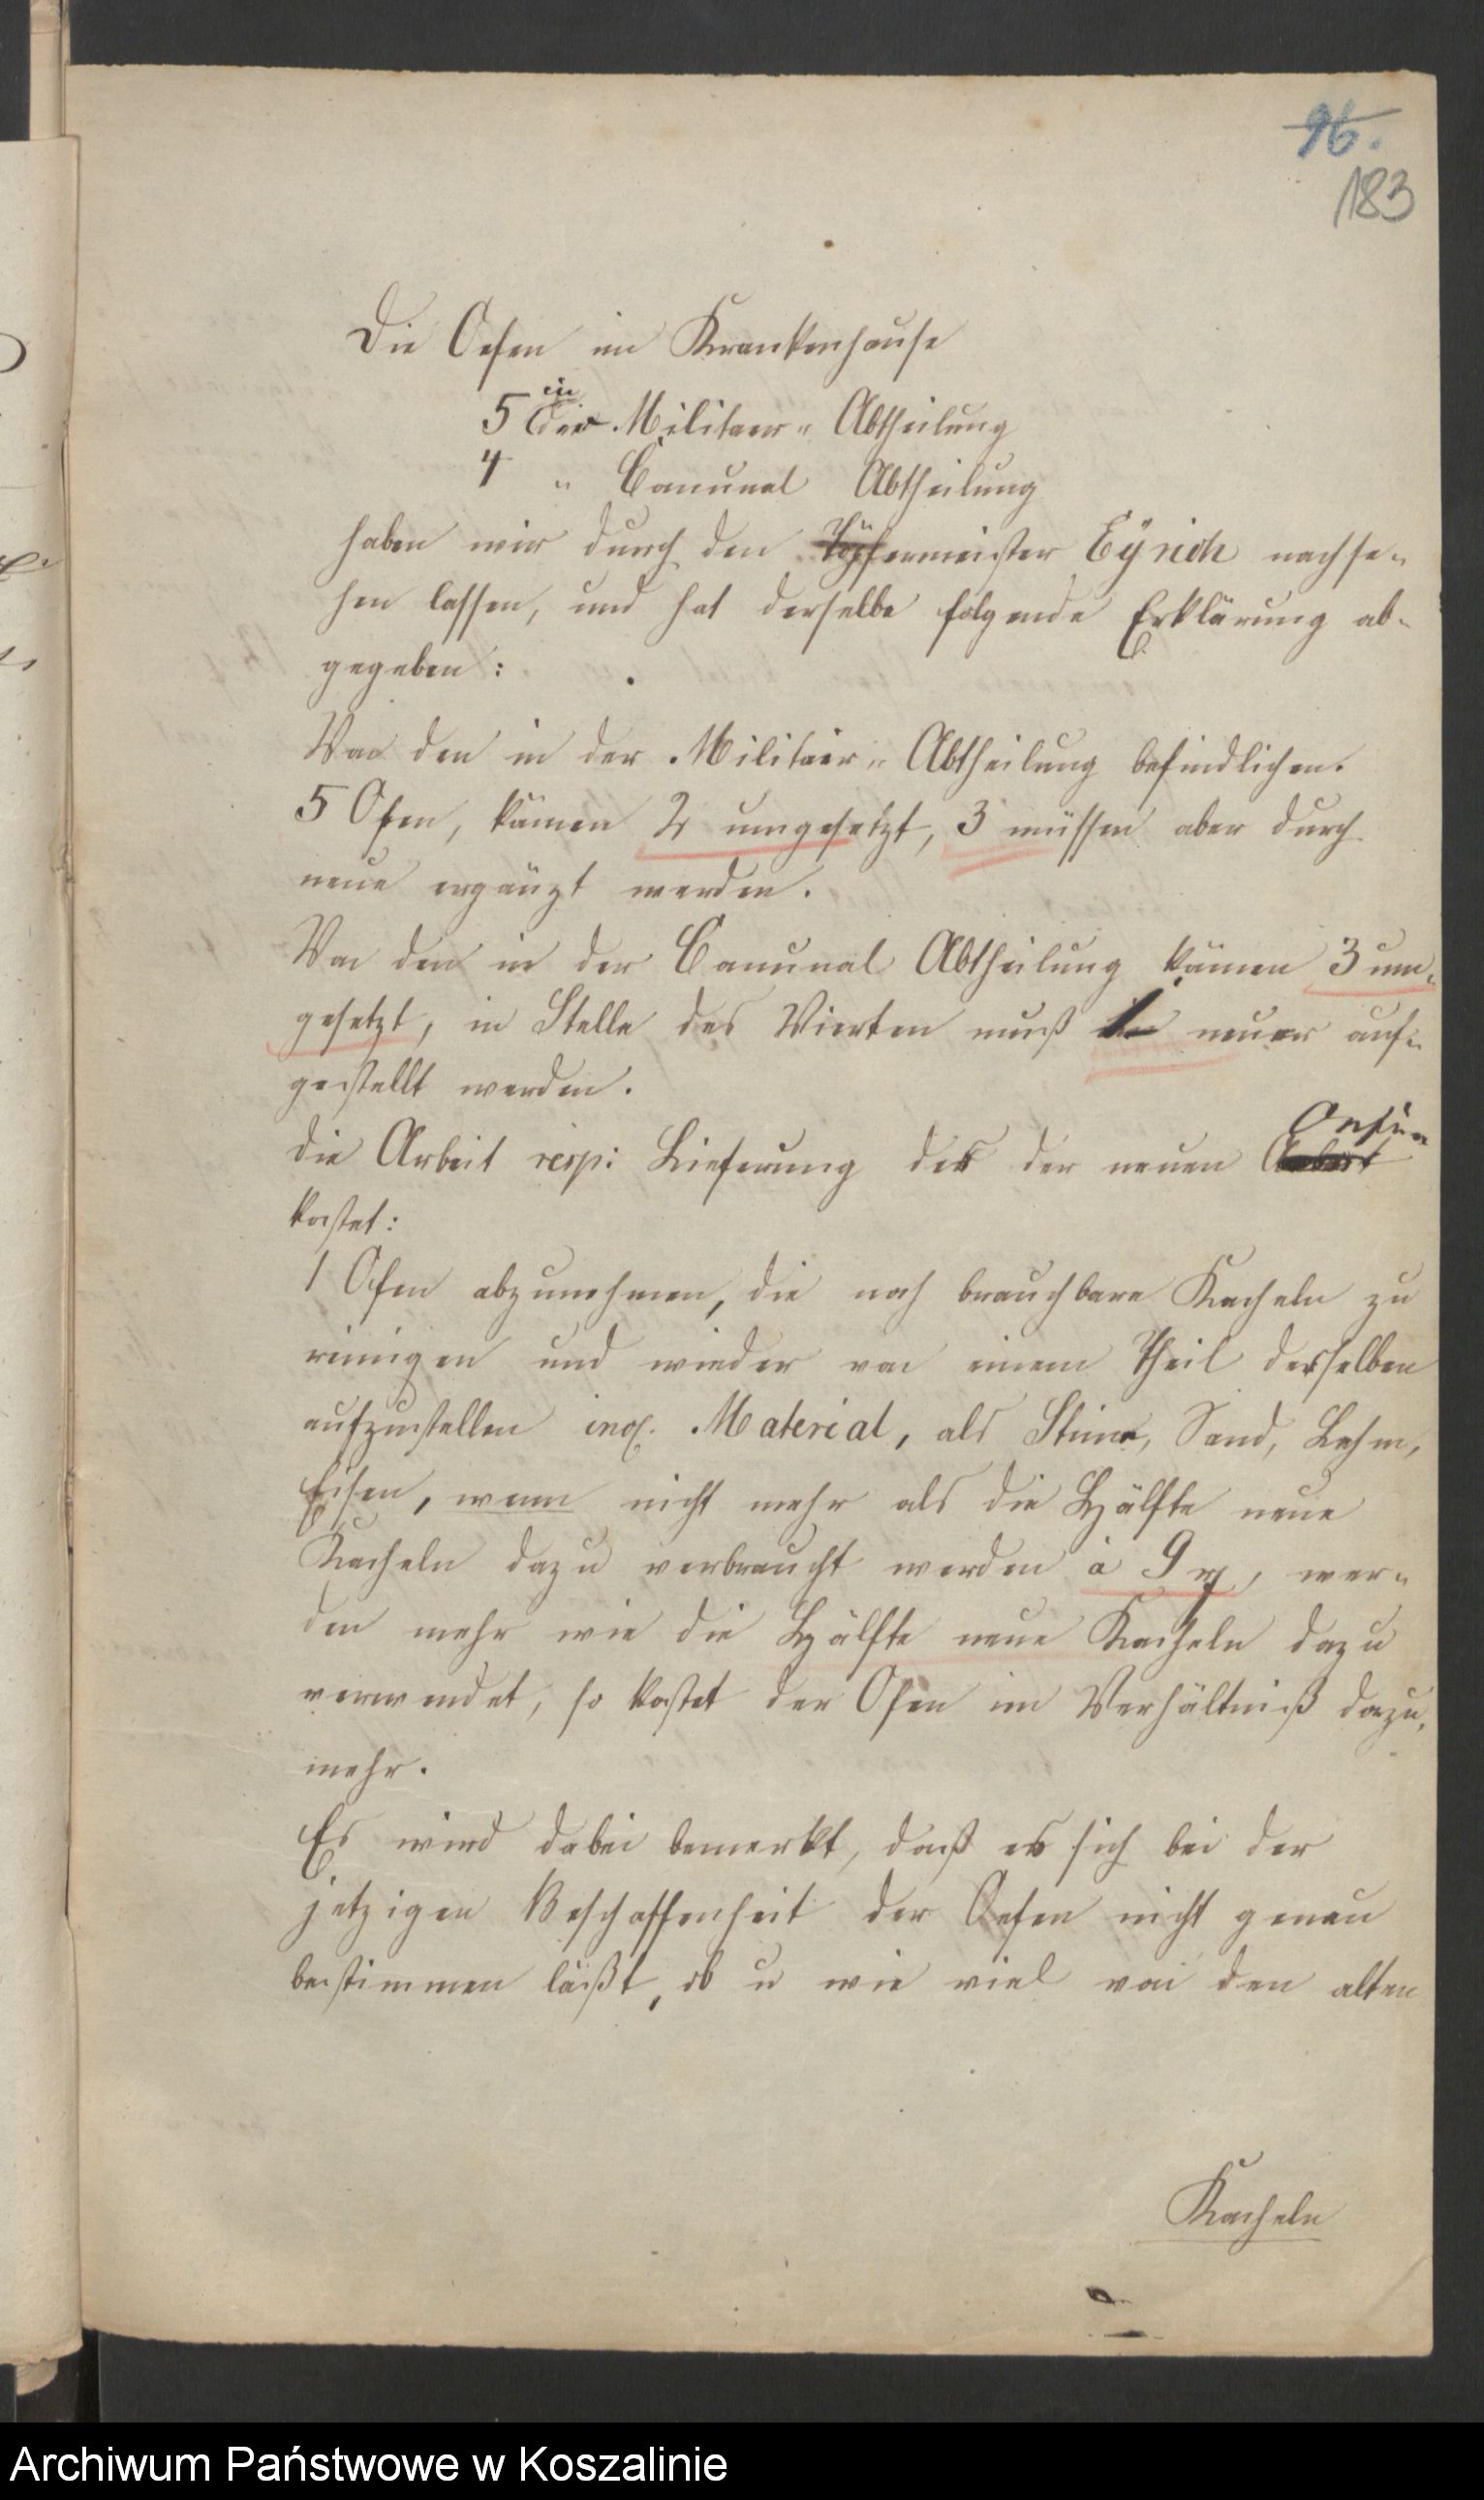 96.
183
Die Oefen im Krankenhause
5 in der Militair- Abtheilung
4 " Comunal Abtheilung
haben wir durch den Töpfermeister Eÿrich nachse-
hen lassen, und hat derselbe folgende Erklärung ab-
gegeben:
Von den in der Militair- Abtheilung befindlichen
5 Ofen, können 2 umgesetzt, 3 müssen aber durch
neue ergänzt werden.
Von den in der Comunal Abtheilung können 3 um-
gesetzt, in Stelle des Vierten muß 1 neuer auf-
gestellt werden.
Die Arbeit resp: Lieferung der neuen Oefen
kostet:
1 Ofen abzunehmen, die noch brauchbare Kacheln zu
reinigen und wieder von einem Theil desselben
aufzustellen incl. Material, als Steine, Sand, Lehm,
Eisen, wenn nicht mehr als die Hälfte neue
Kacheln dazu verbraucht werden à 9 rg, wer-
den mehr wie die Hälfte neue Kacheln dazu
verwendet, so kostet der Ofen im Verhältniß dazu
mehr.
Es wird dabei bemerkt, daß es sich bei der
jetzigen Beschaffenheit der Oefen nicht genau
bestimmen läßt, ob u wie viel von den alten
Kacheln
Archiwum Państwowe w Koszalinie